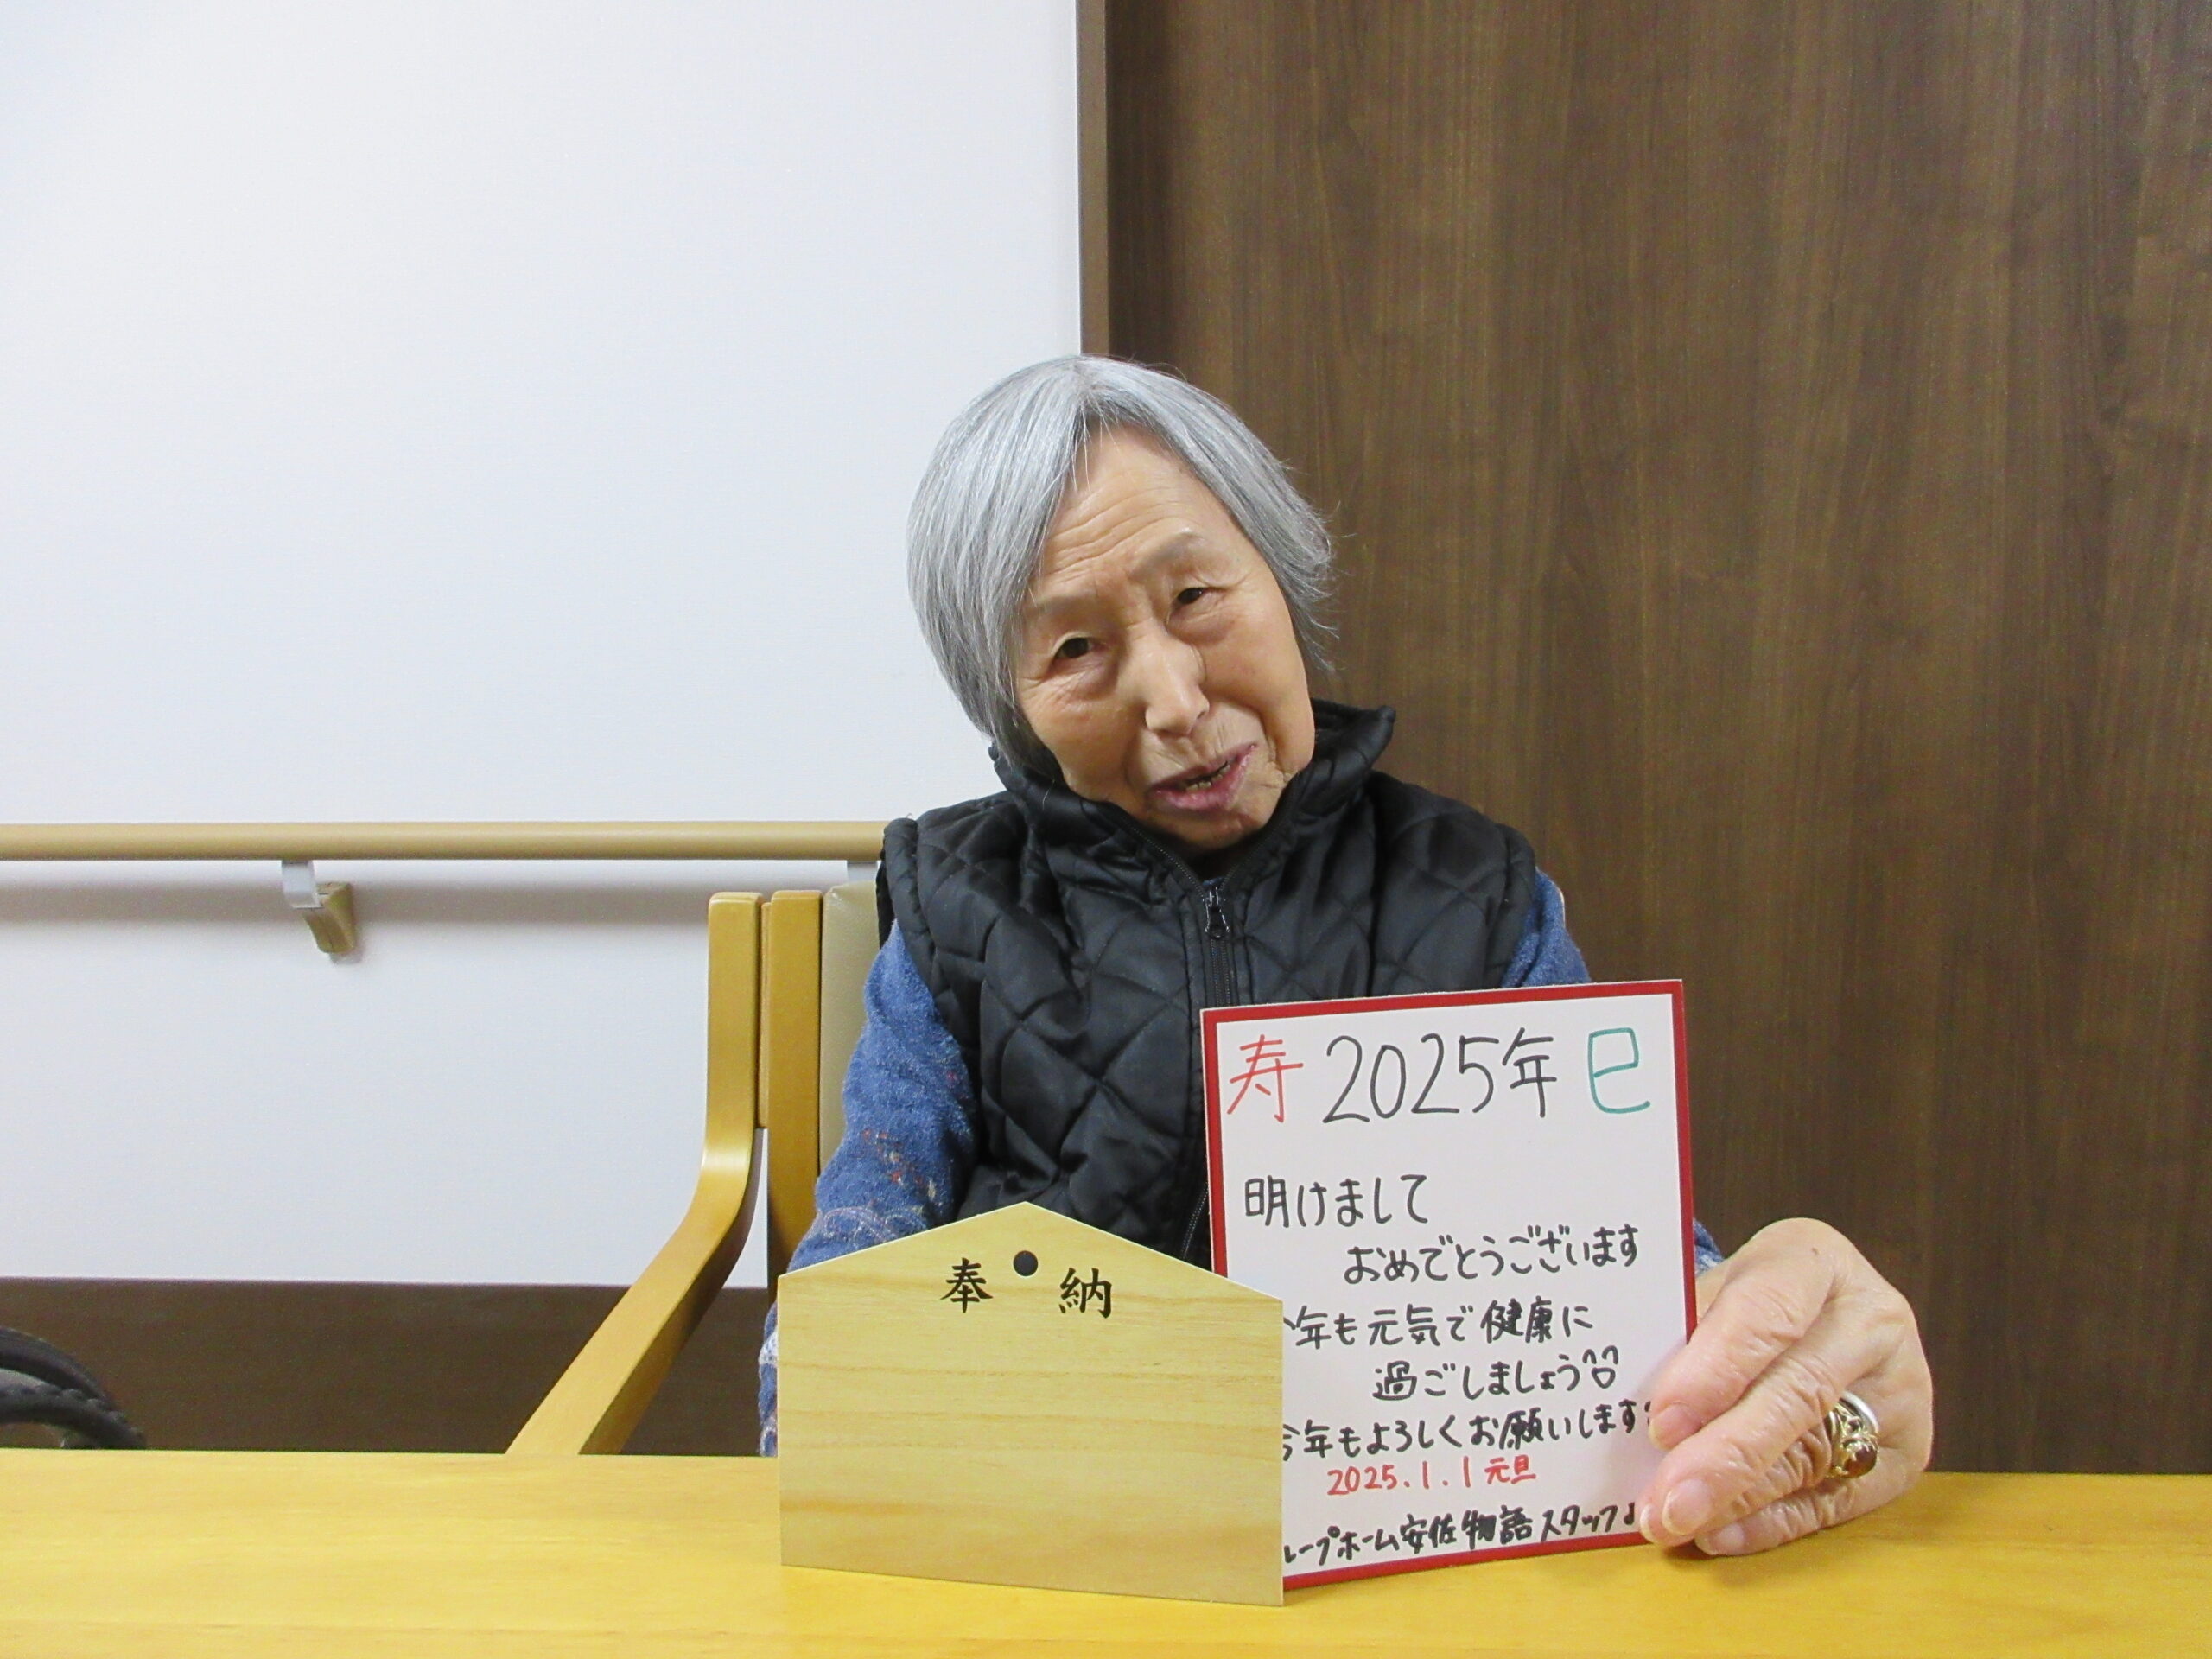 奉納
寿 2025年 巳
明けまして
おめでとうございます
年も元気で健康に
過ごしましょう
今年もよろしくお願いします
2025.1.1 元旦
ループホーム安佐物語スタッフ